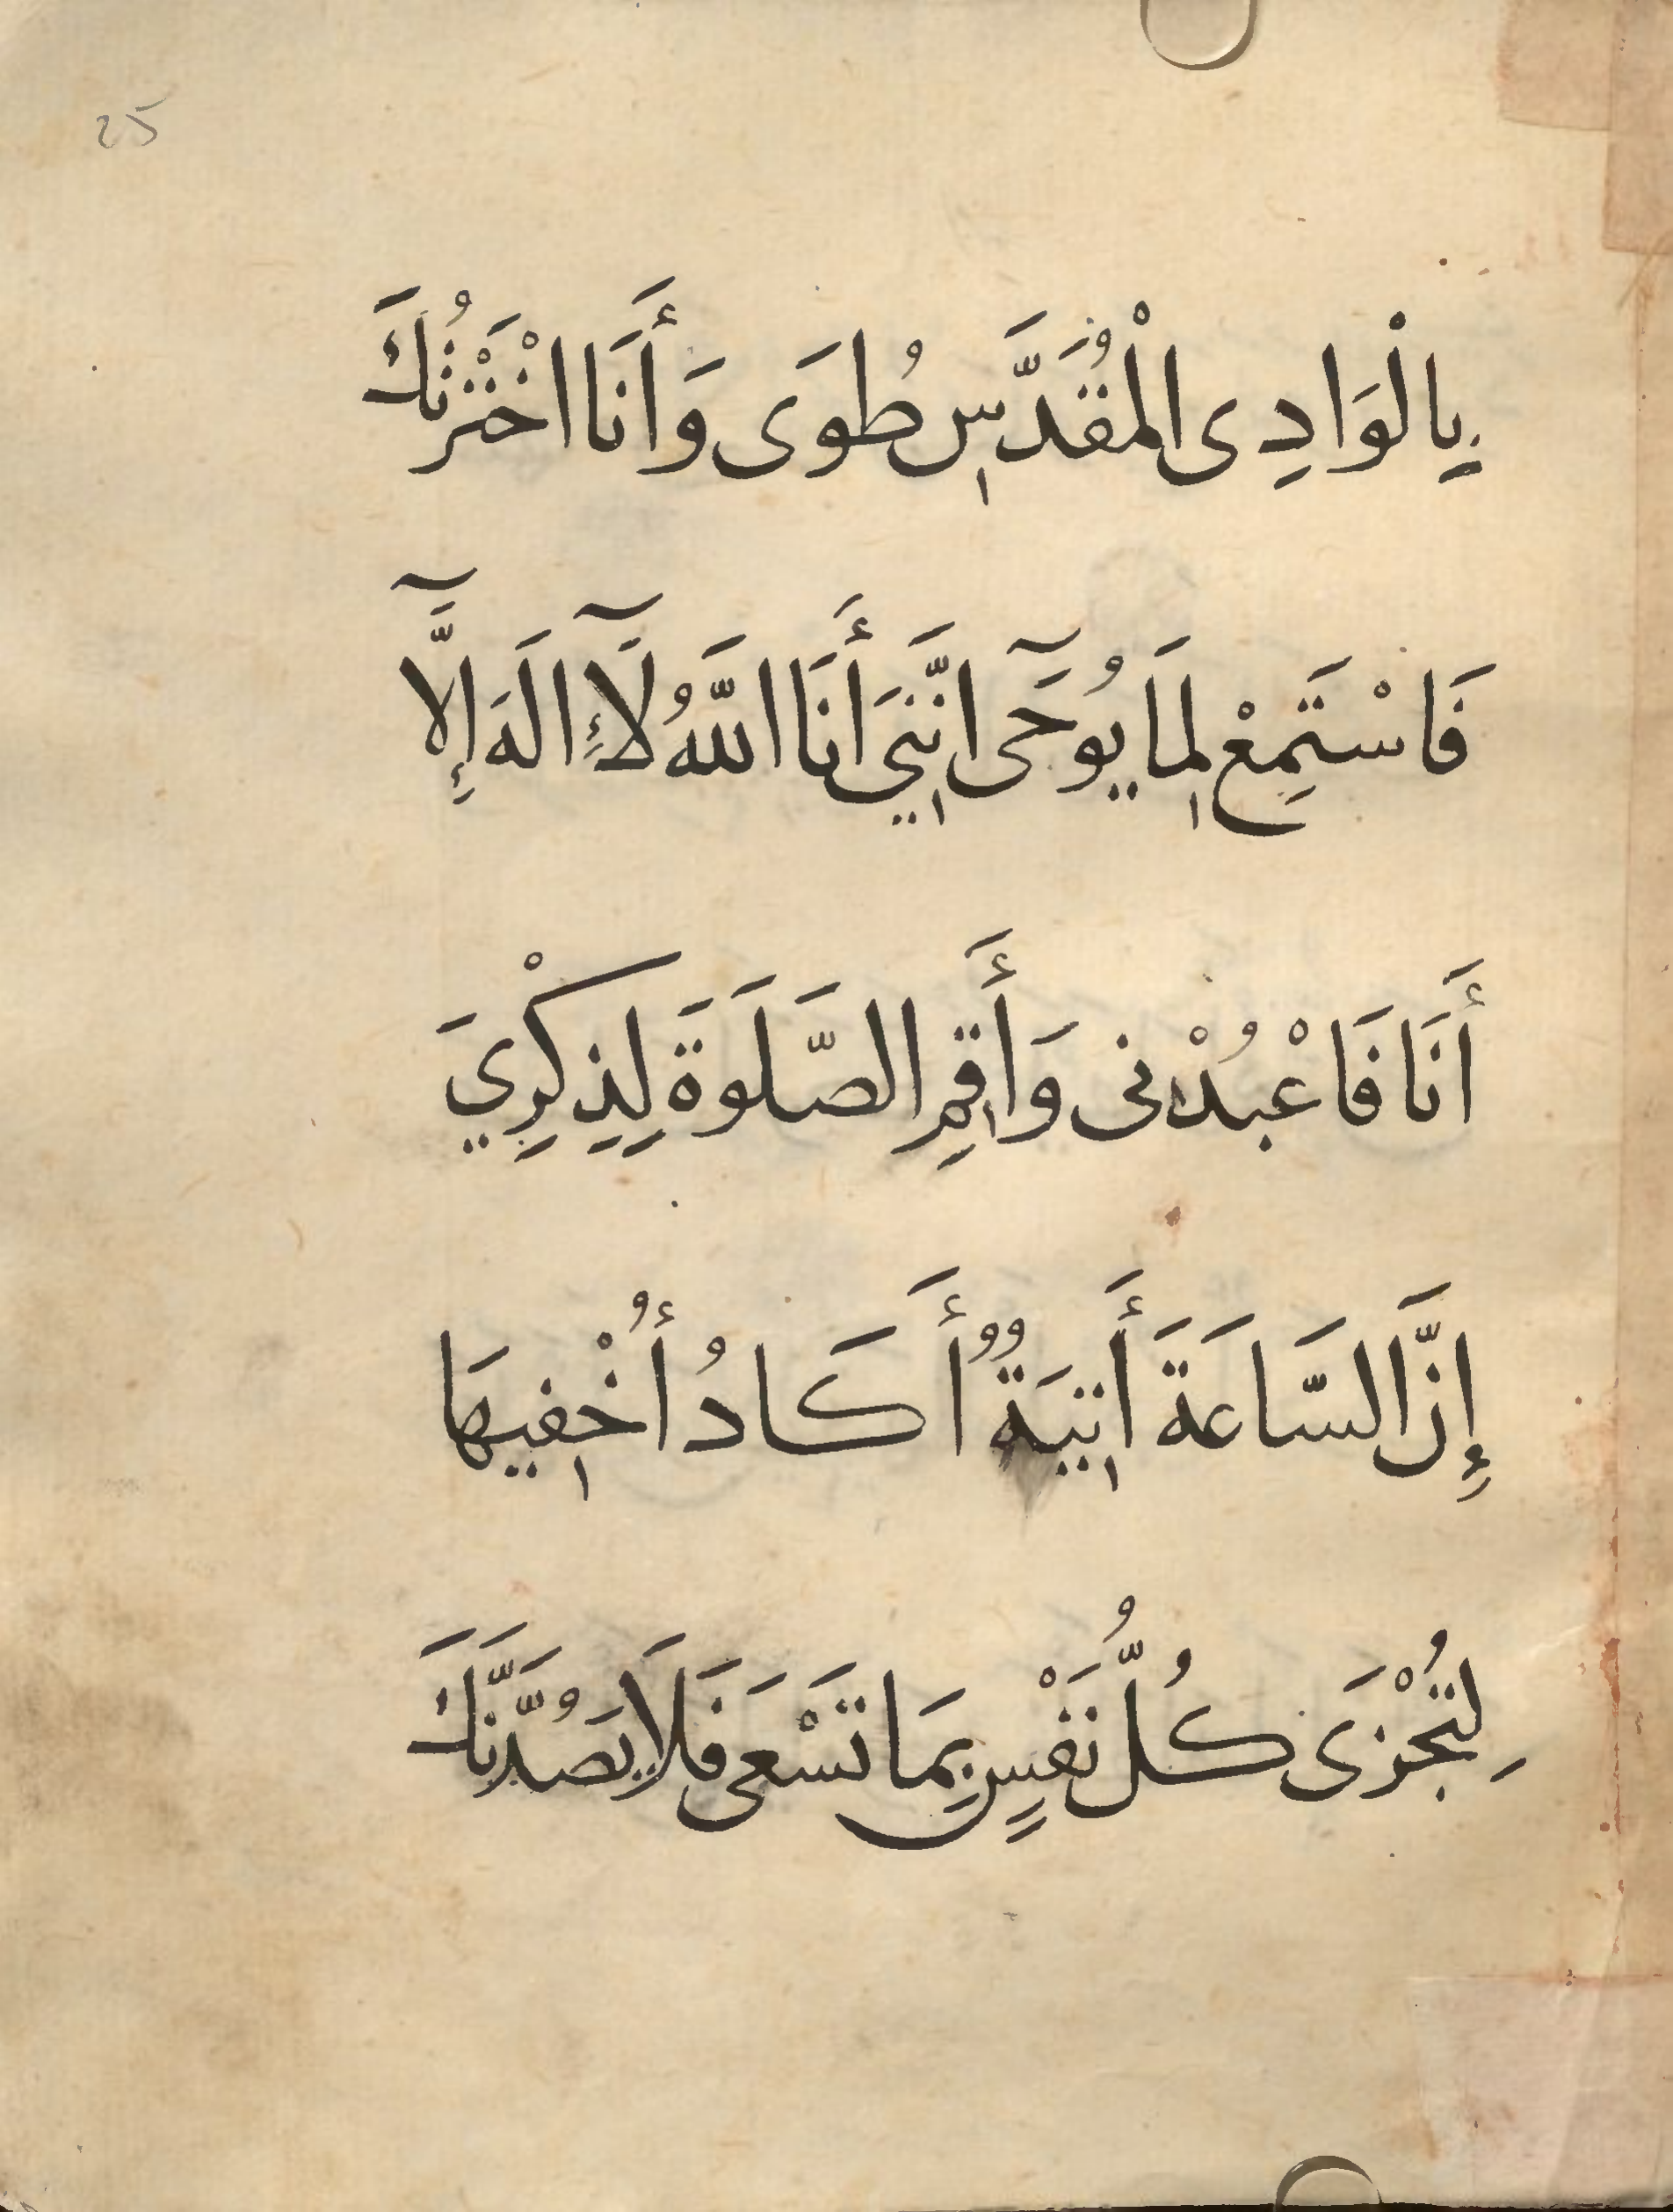 25
بِالْوَادِى الْمُقَدَّسِ طُوَى وَأَنَا اخْتَرْتُكَ
فَاسْتَمِعْ لِمَا يُوحَىٓ انَّنِىَ أَنَا اللَّهُ لَآ إِلَهَ إِلَّآ
أَنَا فَاعْبُدْنِى وَأَقِمِ الصَّلَوةَ لِذِكْرِيَ
إِنَّ السَّاعَةَ أَتِيَةٌ أَكَادُ أُخْفِيهَا
لِتُجْزَى كُلُّ نَفْسٍ بِمَا تَسْعَى فَلَا يَصُدَّنَّكَ